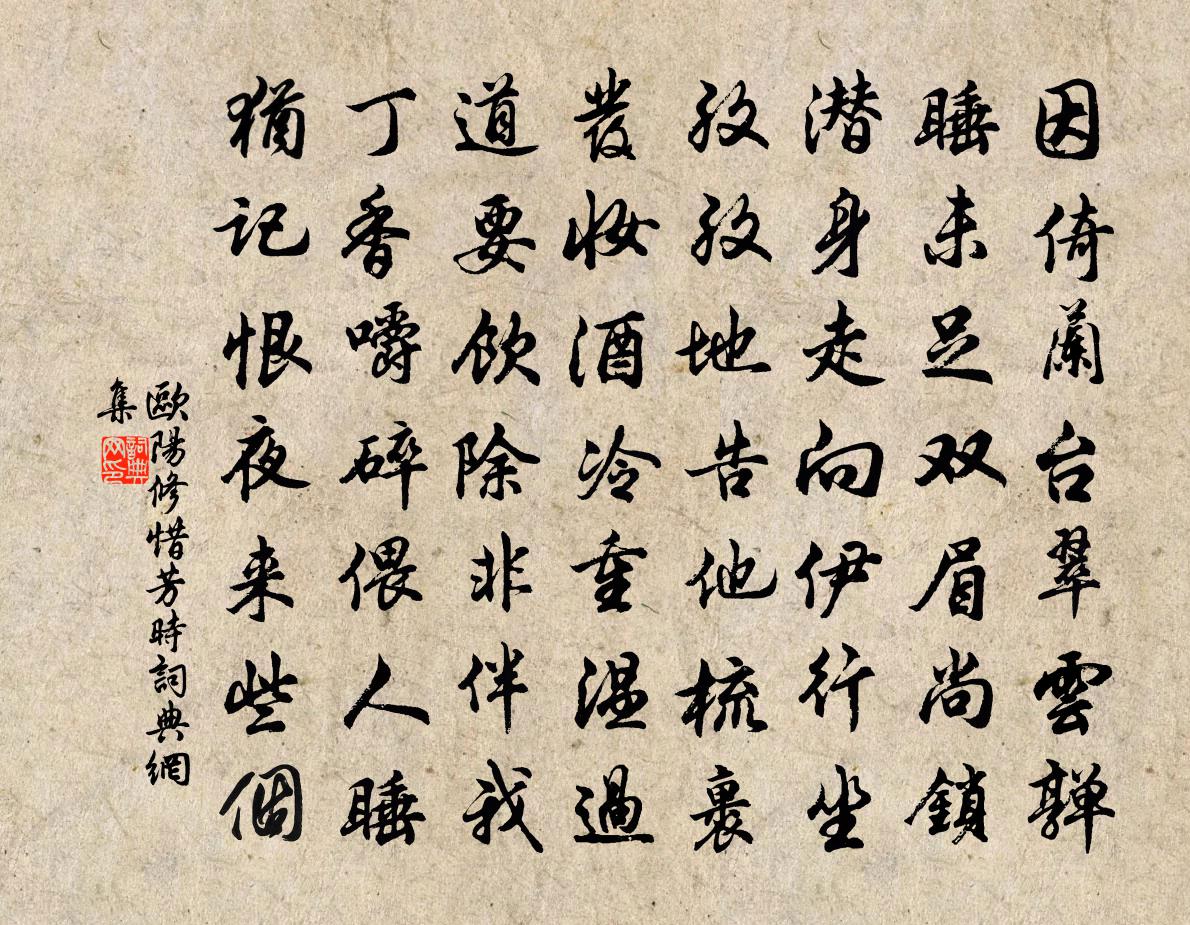 因倚蘭台翠雲嚲
睡未足双眉尚鎖
潜身走向伊行坐
孜孜地告他梳裹
發妆酒冷重温過
道要飲除非伴我
丁香嚼碎偎人睡
猶記恨夜来些個
歐陽修惜芳時詞典網
集
詞典
网印